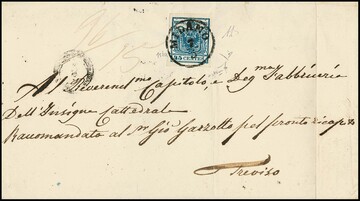 MILANO
45 CENTES
Al Reverend.mo Capitolo, e Deg.ma Fabbriceria
Dell'Insigne Cattedrale
Raccomandata al Sr Gio Garzotto pel pronto ricapito
Treviso